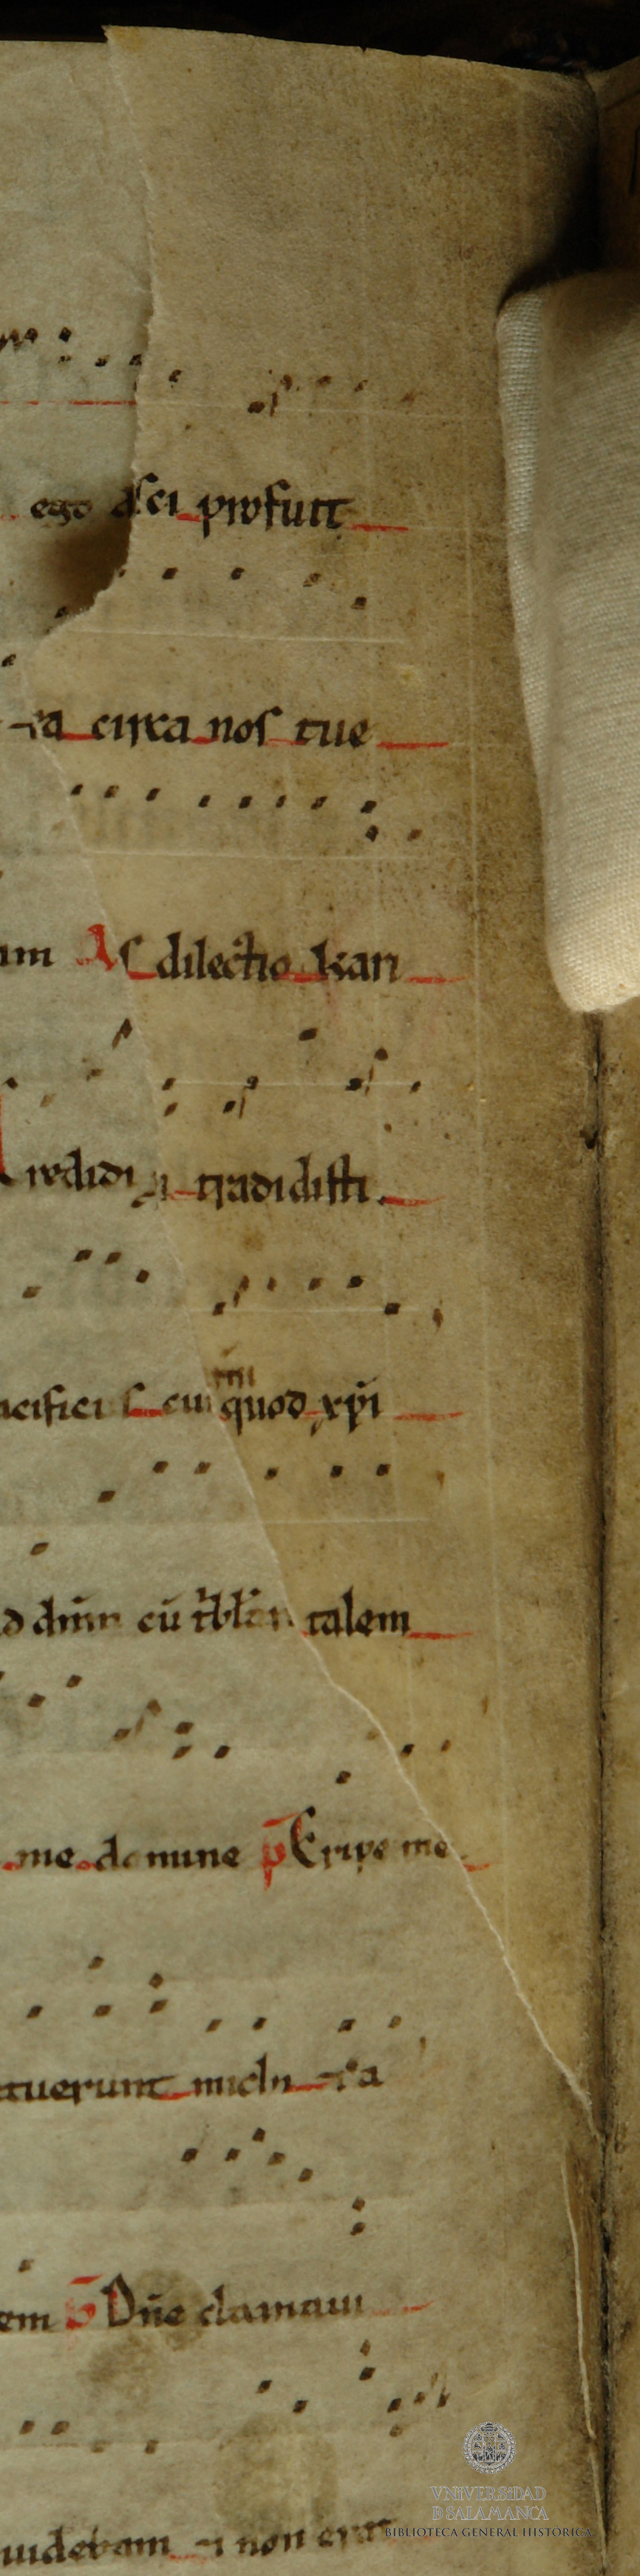 ego dſci profuit
⁊a circa noſ tue
am Aſ dilectio kari
Credidi ⁊ tradidiſti.
acificuſ cū quod xp̄i
d dn̄m cū tbl̄ar talem
me domine p̄ Eripe me
tuerunt michi ⁊a
em p̄ Dn̄e clamaui
uidebam ⁊ non erat
VNIVERSIDAD
D SALAMANCA
BIBLIOTECA GENERAL HISTÓRICA